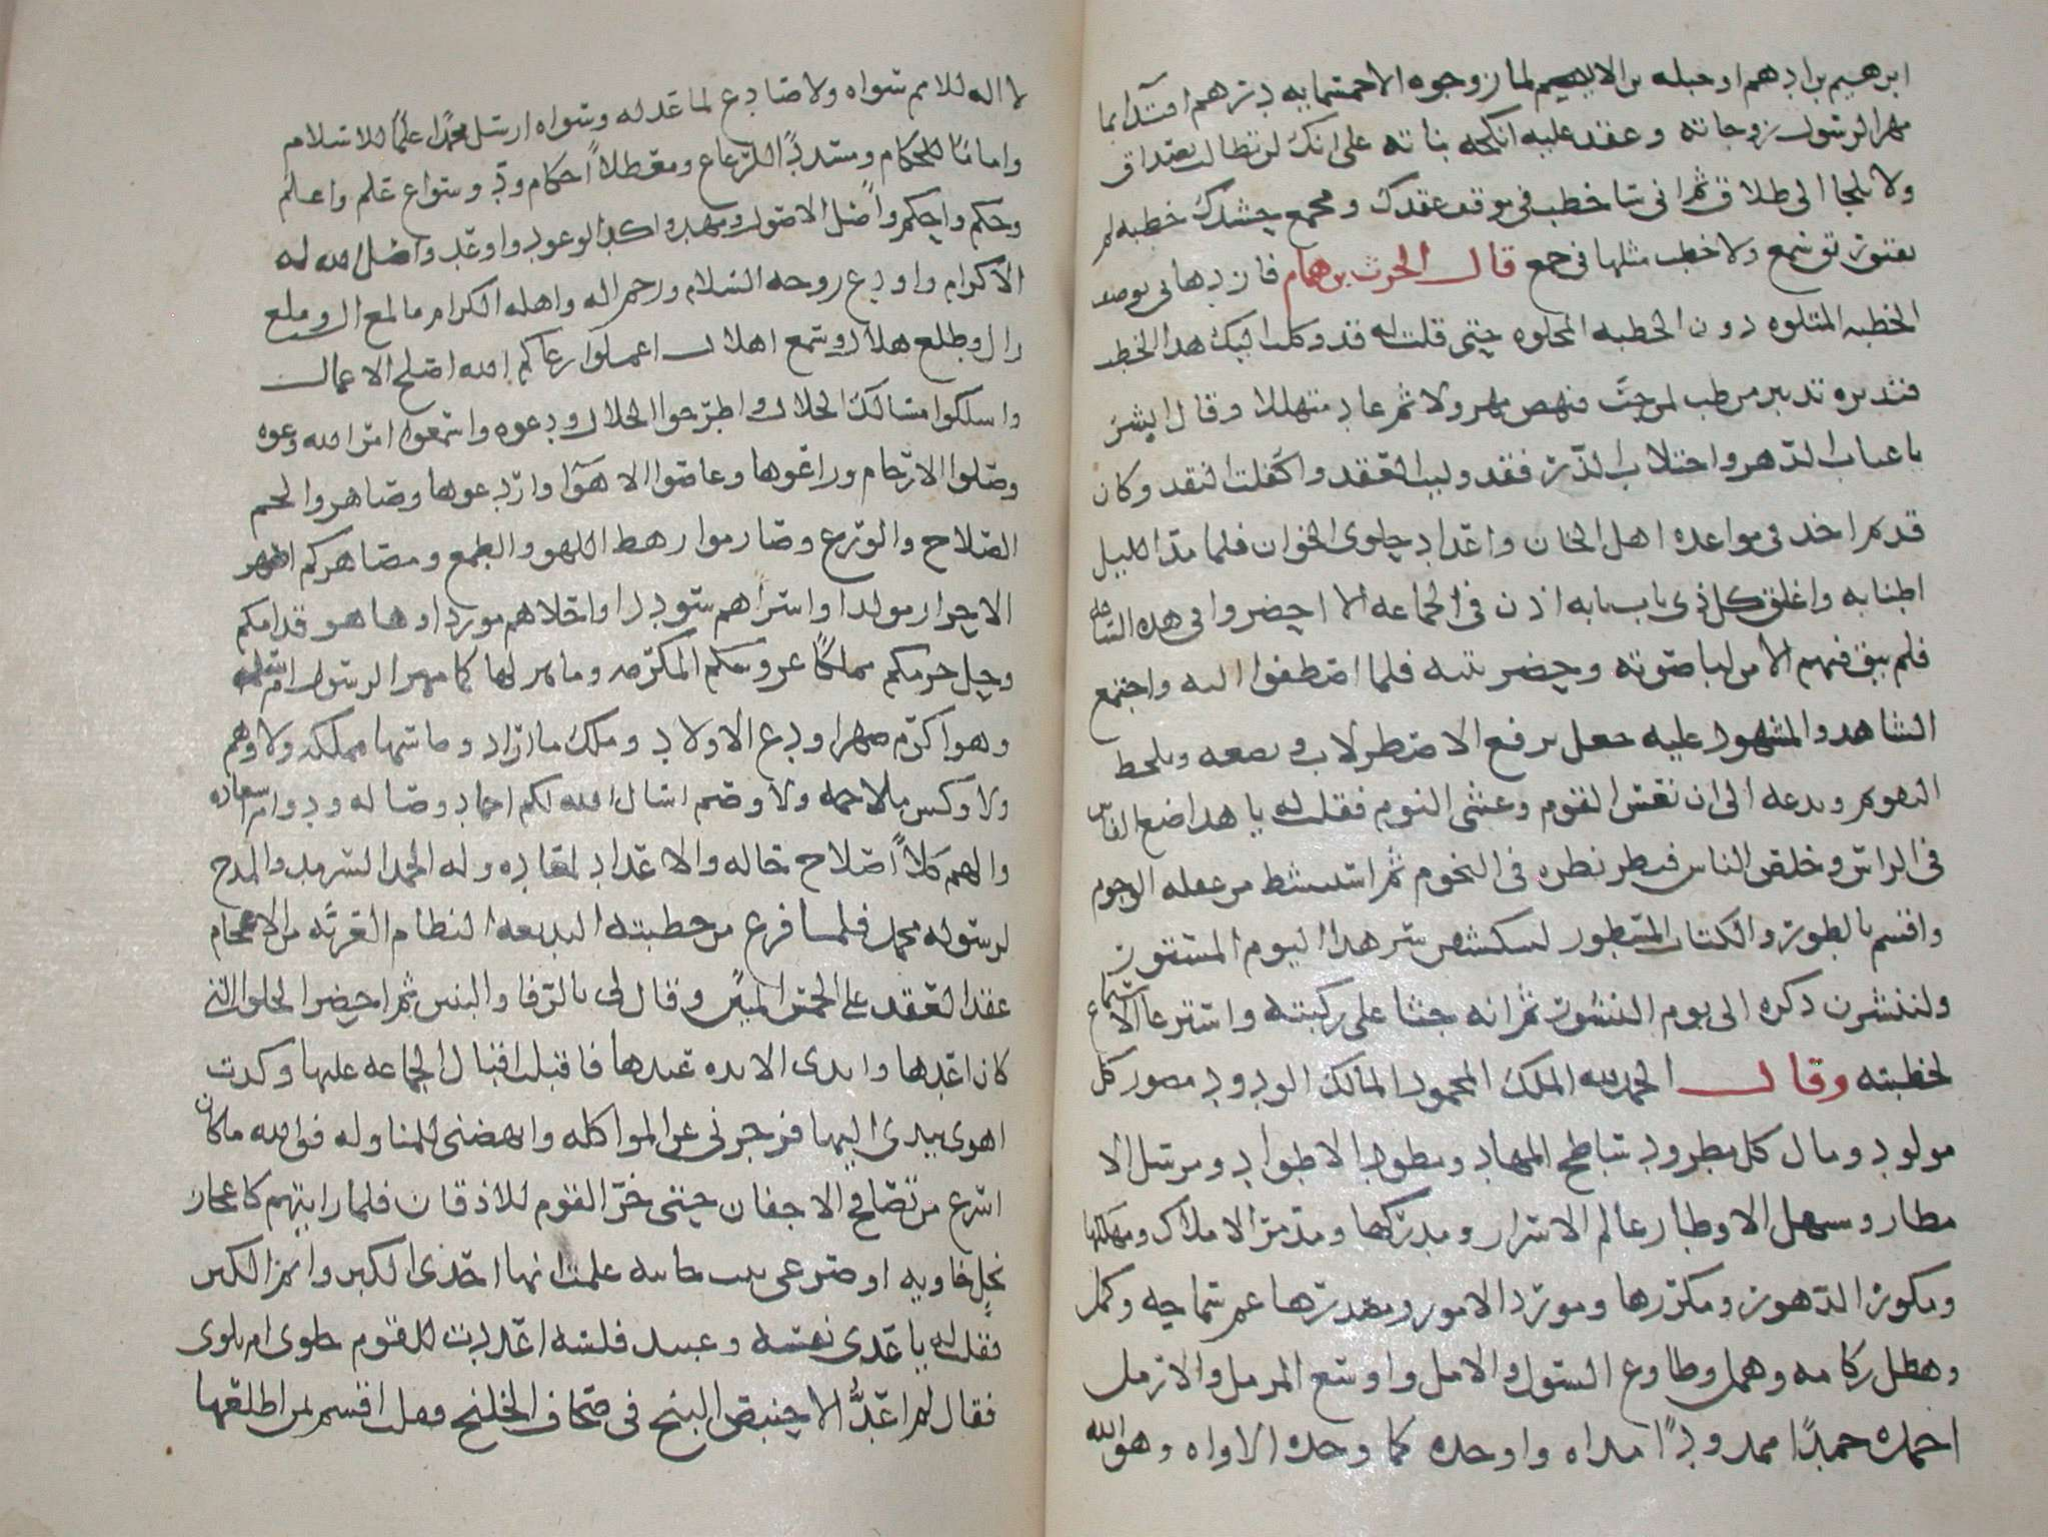 ابرهيم بن ادهم او جبله بن الايهم لما زوجوه الا خمسمايه درهم اقتدا بما
مهر الرسول زوجاته وعقد عليه انكحه بناته على انك لن تطالب بصداق
ولا تلجا الى طلاق ثم انى ساخطب فى موقف عقدك ومجمع حشدك خطبه لم
تفتق رتق سمع ولا خطب مثلها فى جمع قال الحرث بن همام فازدهانى بوصف
الخطبه المتلوه دون الخطبه المجلوه حتى قلت له قد وكلت اليك هذا الخطب
فتدبره تدبير من طب لمن حب فنهض مهرولا ثم عاد متهللا وقال ابشر
باعتاب الدهر واحتلاب الدر فقد وليت العقد واكفلت النقد وكان
قد ثم اخذ فى مواعده اهل الخان واعداد حلوى الخوان فلما مد الليل
اطنابه واغلق كل ذى باب بابه اذن فى الجماعه الا احضروا فى هذه الساعه
فلم يبق فيهم الا من لبا صوته وحضر بيته فلما اصطفوا لديه واجتمع
الشاهد والمشهود عليه جعل يرفع الاصطرلاب ويضعه ويلحظ
التقويم ويدعه الى ان نعس القوم وغشى النوم فقلت له يا هذا ضع الفاس
فى الراس وخلص الناس فنظر نظره فى النجوم ثم استنشط من عقله الوجوم
واقسم بالطور والكتاب المسطور لينكشفن سر هذا اليوم المستور
ولننشرن ذكره الى يوم النشور ثم انه جثا على ركبته واسترعا الاسماع
لخطبته وقال الحمد لله الملك المحمود المالك الودود مصور كل
مولود ومال كل مطرود ساطح المهاد وموطد الاطواد ومرسل الا
مطار ومسهل الاوطار عالم الاسرار ومدركها ومدمر الاملاك ومهلكها
ومكور الدهور ومكررها ومورد الامور ومصدرها عم سماحه وكمل
وهطل ركامه وهمل وطاوع السول والامل واوسع المرمل والارمل
احمده حمدا ممدودا مداه واوحده كما وحده الاواه وهو الله
لا اله للامم سواه ولا صادع لما عدله وسواه ارسل محمدا علما للاسلام
واماما للحكام ومسددا للرعاع ومعطلا احكام ود وسواع علم واعلم
وحكم واحكم واصل الاصول ومهد واكد الوعود واوعد واصل الله له
الاكرام واودع روحه السلام ورحم اله واهله الكرام ما لمع ال وملع
رال وطلع هلال وسمع اهلال اعملوا رعاكم الله اصلح الاعمال
واسلكوا مسالك الحلال واطرحوا الحلال ودعوه واسمعوا امر الله وعوه
وصلوا الارحام وراعوها وعاصوا الاهوا واردعوها وصاهروا لحم
الصلاح والورع وصارموا رهط اللهو والطمع ومصاهركم اطهر
الاحرار مولدا واسراهم سوددا واحلاهم موردا وها هو قد امكم
وحل حرمكم مملكا عروسكم المكرمه وماهر لها كما مهر الرسول ام سلمه
وهو اكرم صهر اودع الاولاد وملك ما اراد وما سها مملكه ولا وهم
ولا وكس ملاحمه ولا وصم اسال الله لكم احماد وصاله ودوام اسعاده
والهم كلا اصلاح حاله والاعداد لمعاده وله الحمد السرمد والمدح
لرسوله محمد فلما فرغ من خطبته البديعه النظام العريه من الاعجام
عقد العقد على الخمس المبين وقال لى بالرفا والبنين ثم احضر الحلوا التى
كان اعدها وابدى الابده عندها فاقبلت اقبال الجماعه عليها وكدت
اهوى بيدى اليها فزجرنى عن المواكله وانهضنى للمناوله فوالله ما كان
اسرع من تصافح الاجفان حتى خر القوم للاذقان فلما رايتهم كاعجاز
نخل خاويه او صرعى بنت خابيه علمت انها احدى الكبر وام العبر
فقلت له يا عدى نفسه وعبيد فلسه اعددت للقوم حلوى ام بلوى
فقال لم اعد الا خبيص البنج فى صحاف الخلنج فقلت اقسم بمن اطلعها